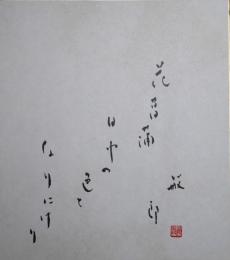 花菖蒲
日中の
色と
なりにけり
敏郎